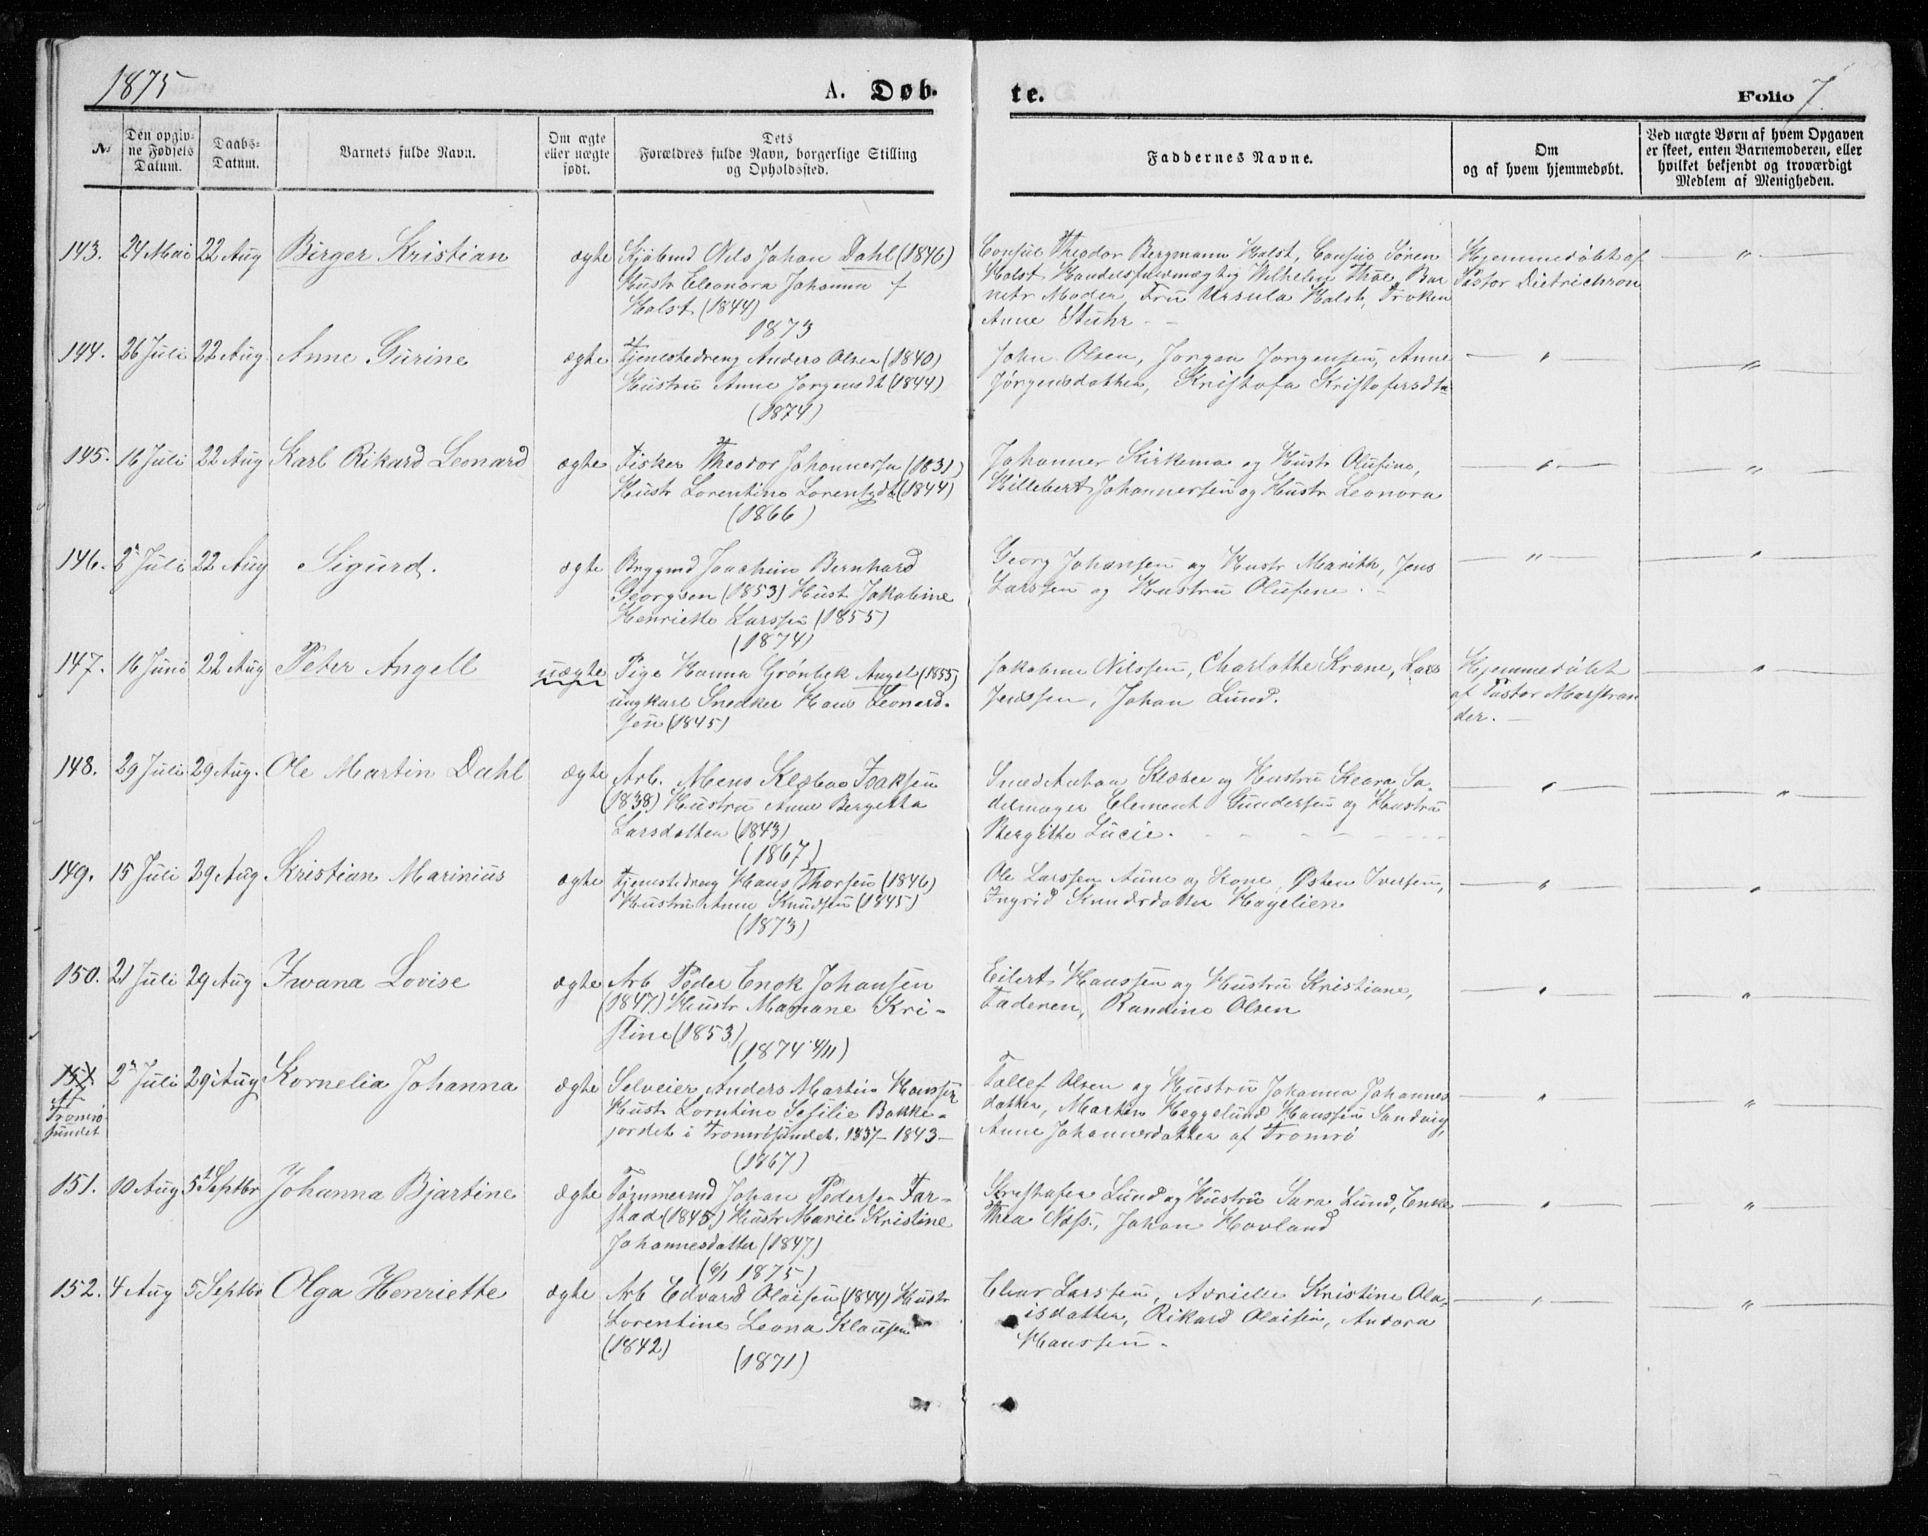 1875
A. Døb
te.
Folio 7.
No
Den opgivne Fødsels Datum.
Daabs-Datum.
Barnets fulde Navn.
Om ægte eller uægte født.
Dets
Forældres fulde Navn, borgerlige Stilling
og Opholdssted.
Faddernes Navne.
Om
og af hvem hjemmedøbt.
Ved uægte Børn af hvem Opgaven
er skeet, enten Barnemoderen, eller
hvilket bekjendt og troværdigt
Medlem af Menigheden.
143. 24 Mai 22 Aug Birger Kristian ægte Kjøbmd Nils Johan Dahl (1846)
Hustr Eleonora Johanna f
Holst (1844)
1873
Consul Theodor Bergmann Holst, Consul Søren
Holst Handelsfuldmægtig Wilhelm Thoe, Bar
nets Moder, Fru Ursula Holst, Frøken
Anne Stuhr
Hjemmedøbt af
Pastor Dietrichson
"
144. 26 Juli 22 Aug Anne Gurine ægte Tjenestedreng Anders Olsen (1840)
Hustru Anne Jørgensdt (1844)
(1874)
John Olsen, Jørgen Jørgensen, Anne
Jørgensdatter, Kristofa Kristofersdtr
"
"
145. 16 Juli 22 Aug Karl Rikard Leonard ægte Fisker Theodor Johannesen (1831)
Hustr Lorentine Lorentzdt (1844)
(1866)
Johannes Kirkemo og Hustr Olufine,
Hillebert Johannesen og Hustr Leonora
"
"
146. 2 Juli 22 Aug Sigurd. ægte Brygmd Joachim Bernhard
Georgsen (1853) Hust Jakobine
Henriette Larssen (1855)
(1874)
Georg Johansen og Hustr Marith, Jens
Larssen og Hustru Olufine.
"
"
147. 16 Juni 22 Aug Peter Angell uægte Pige Hanna Grønbek Angel (1855)
ungkarl Snedker Hans Leonard-
sen (1845)
Jakobine Nilssen, Charlotte Krane, Lars
Jenssen, Johan Lund.
Hjemmedøbt
af Pastor Marstran
der.
"
148. 29 Juli 29 Aug. Ole Martin Dahl ægte Arb. Mens Klæboe Isaksen
(1838) Hustru Anne Bergitta
Larsdatter (1843)
(1867)
Smed Anton Klæboe og Hustru Keara, Sa-
delmager Clement Gundersen og Hustru
Bergitte Lucie.
"
"
149. 15 Juli 29 Aug Kristian Marinius ægte Tjenestedreng Hans Thorsen (1846)
Hustru Anne Knudsen (1845)
(1873)
Ole Larssen Aune og Kone, Østen Iversen,
Ingrid Knudsdatter Hagelien
"
"
150. 21 Juli 29 Aug Iwana Lovise ægte Arb Peder Enok Johansen
(1847) Hustr Mariane Kri-
stine (1853)
(1874 4/11)
Eilert Hanssen og Hustru Kristiane,
Faderen, Randine Olsen
"
"
151. 2 Juli 29 Aug Kornelia Johanna ægte Selveier Anders Martin Hanssen
Af
Tromsø
sundet
Hust Lorntine Sesilie Bakke-
jordet i Tromsøsundet. 1837 - 1843 -
(1867)
Tollef Olsen og Hustru Johanna Johannes
datter, Marten Heggelund Hanssen Sandvig,
Anne Johannesdatter af Tromsø
"
"
151. 10 Aug 5 Septbr Johanna Bjartine ægte Tømmermd Johan Pedersen Far-
stad (1845) Hustr Marie Kristine
Johannesdatter (1847)
(6/1 1875)
Kristofer Lund og Hustru Sara Lund, Enke
Thea Næss, Johan Hovland
"
"
152. 4 Aug 5 Septbr Olga Henriette ægte Arb Edvard Olaisen (1844) Hustr
Lorentine Leona Klausen
(1842)
(1871)
Elvar Larssen, Kristine Ola-
isdatter, Rikard Olaisen, Andora
Hanssen.
"
"